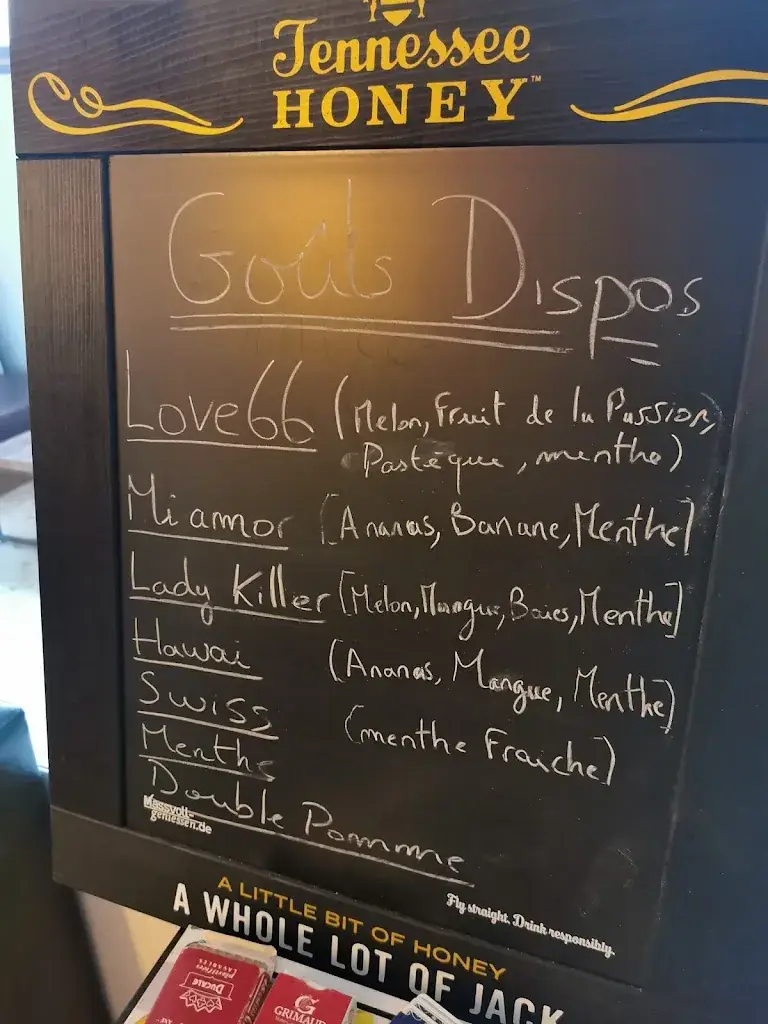 Tennessee
HONEY™
Goûts Dispos
Love66 (Melon, Fruit de la Passion,
Pastèque, menthe)
Mi amor [Ananas, Banane, Menthe]
Lady Killer [Melon, Mangue, Baies, Menthe]
Hawai (Ananas, Mangue, Menthe)
Swiss (menthe Fraiche)
Menthe
Double Pomme
Massvoll-
geniessen.de
Fly straight. Drink responsibly.
A LITTLE BIT OF HONEY
A WHOLE LOT OF JACK
DUCALE
GRIMAUD